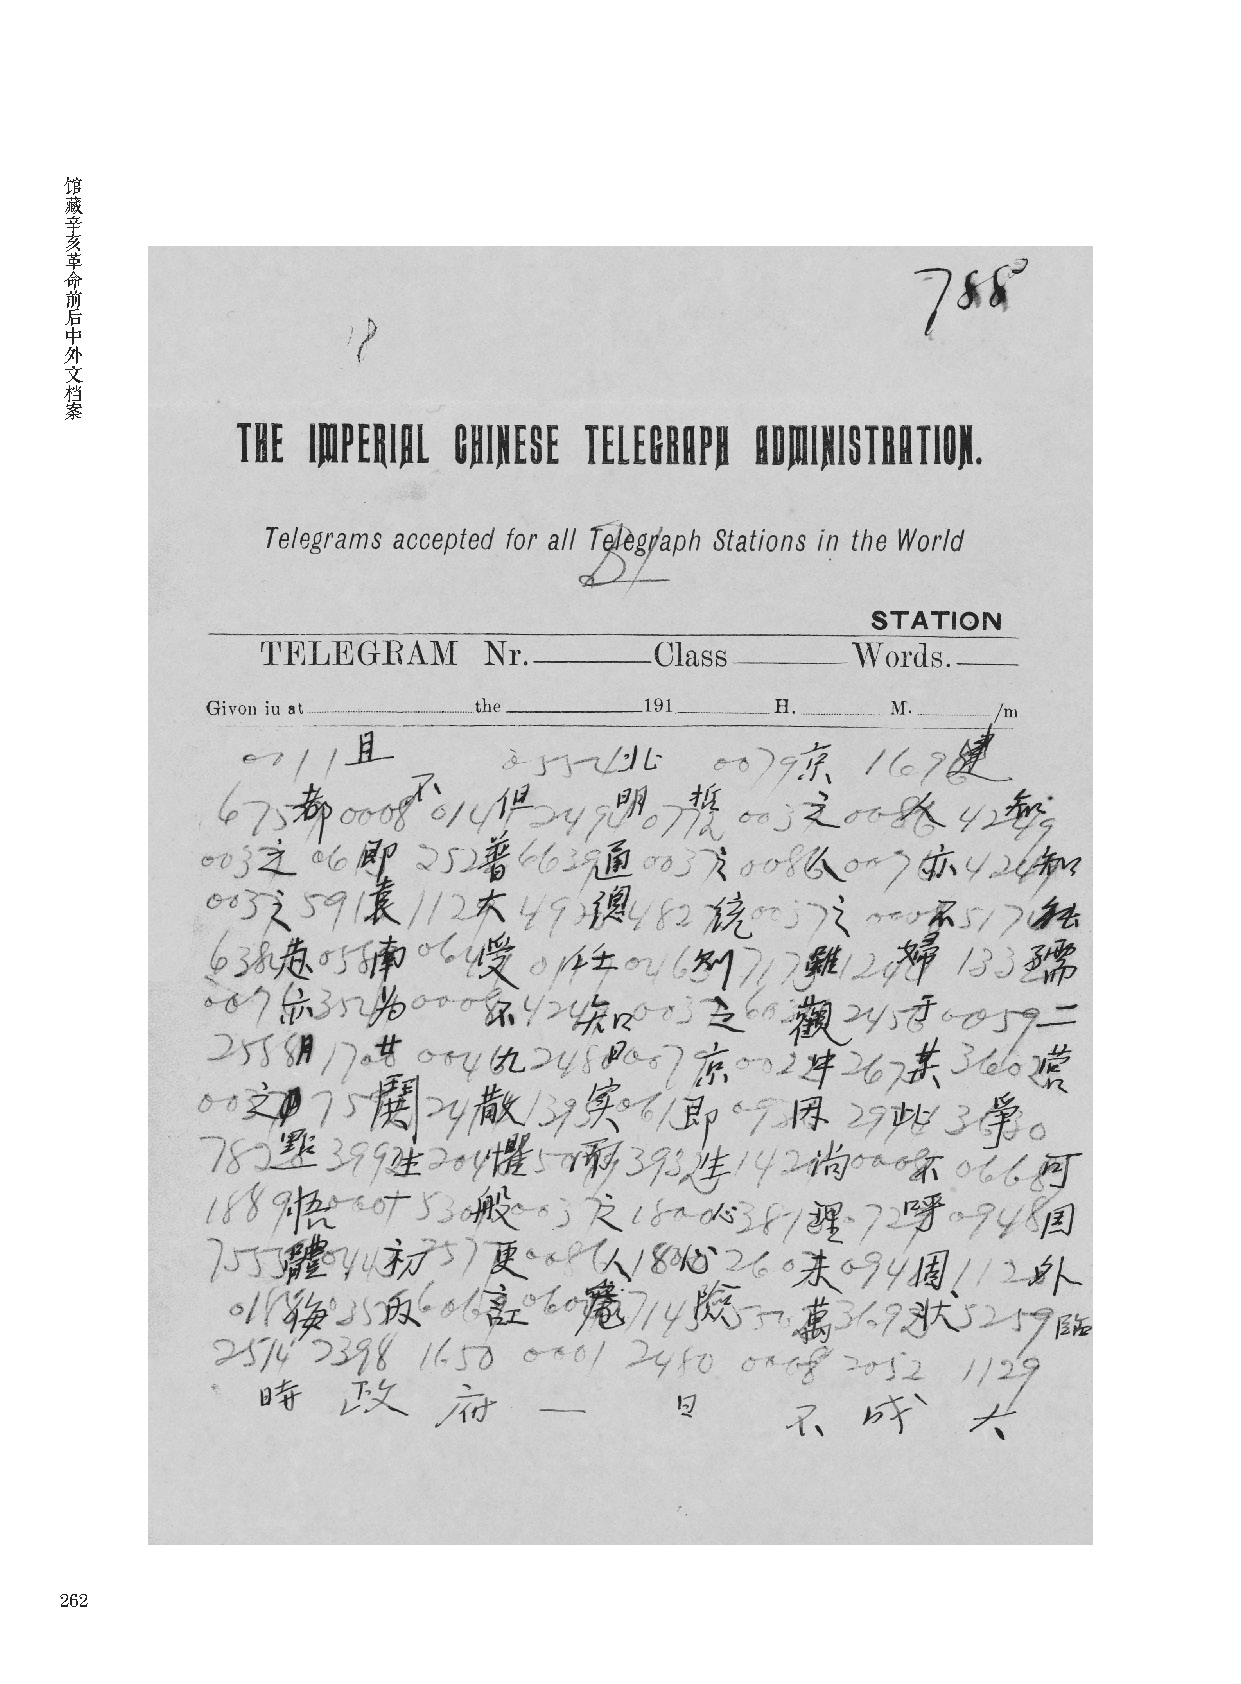 馆藏辛亥革命前后中外文档案
788
18
THE IMPERIAL CHINESE TELEGRAPH ADMINISTRATION.
Telegrams accepted for all Telegraph Stations in the World
STATION
TELEGRAM Nr. Class Words.
Givon iu at the 191 H. M. /m
0011且 0554北 0079京 1696建
675都0008不014但2494明0772哲0037之0086人4249知
0037之06即252普6639通0037之0086人0076亦4249知
0037之591袁112大4928總482統0037之0008不517能
638赴058南064受01任0463別717難124婦133孺
0076亦352為0008不424知0037之60觀2456于0059二
2558月1708廿0046九2480日0079京0022中267某3602營
0037之75鬨24散1395实061即093因29此3630爭
782點3992生204懼50而3932生142尚0008不0668可
1889悟000下530般0037之1800心381理072呼0948国
7555體044初257更0086人1800心260未094固112外
0188侮035的606訌060 714險550萬3692狀5259臨
2514 2398 1650 0001 2480 0008 2052 1129
時 政 府 一 旦 不 成 大
262